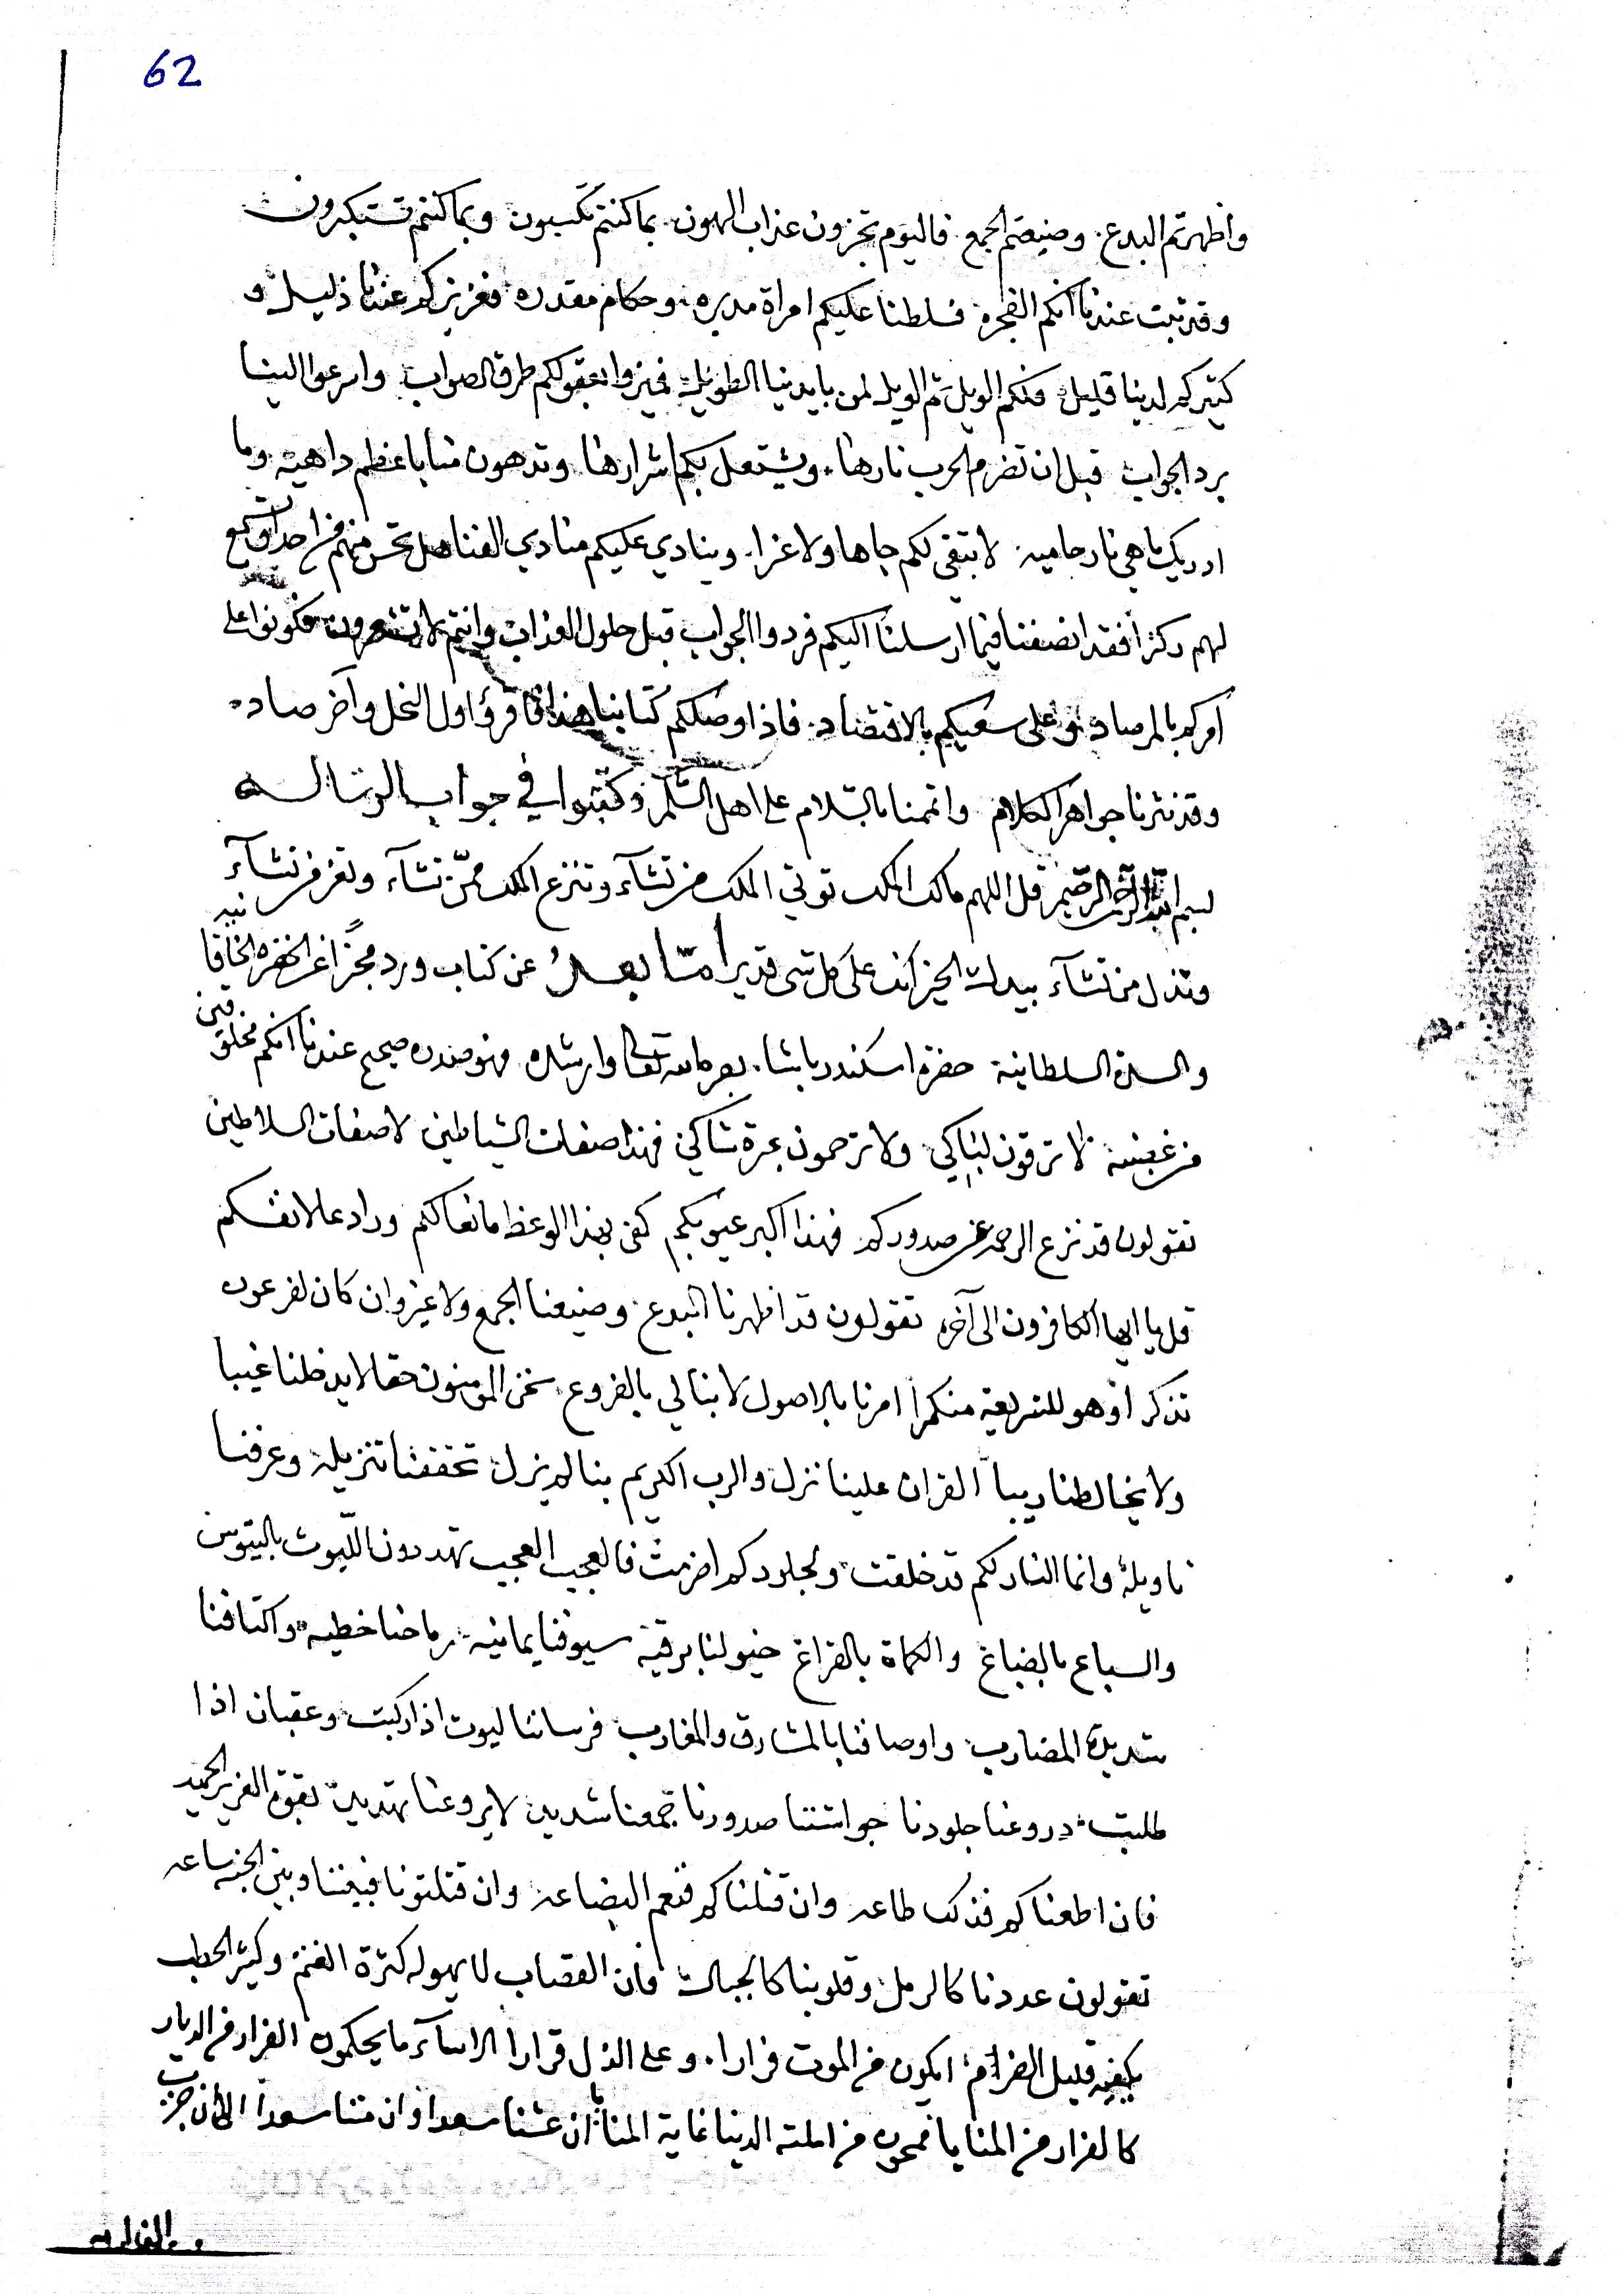 62
واظهرتم البدع. وضيعتم الجمع. فاليوم تجزون عذاب الهون. بما كنتم تكسبون وبما كنتم تستكبرون
وقد ثبت عندنا انكم الفجره فسلطنا عليكم امراة مدبره. وحكام مقدره فعزيزكم عندنا ذليل و
كثيركم لدينا قليل فلكم الويل ثم الويل لمن بايدينا الطويل فميزوا بعقولكم طرق الصواب واسرعوا الينا
برد الجواب قبل ان تضرم الحرب نارها. ويشتعل بكم شرارها وتدهون منا باعظم داهيه وما
ادريك ما هي نار حاميه. لا يتقي لكم جاها ولا عزا. وينادي عليكم منادي الفنا هل تحس منهم من احد او تسمع
لهم ركزا فقد انصفنا فيما ارسلنا اليكم فردوا الجواب قبل حلول العذاب وانتم لا تشعرون فكونوا على
امركم بالمرصاد وعلى سعيكم بالاقتصاد. فاذا وصلكم كتابنا هذا فاقرؤا اول النحل وآخر صاد.
وقد نثرنا جواهر الكلام واتممنا بالسلام على اهل السلم وكتبوا في جواب الرساله
بسم الله الرحمن الرحيم قل اللهم مالك الملك توتي الملك من تشآء وتنزع الملك ممّن تشآء وتعز من تشآء
وتذل من تشآء بيدك الخير انك على كل شي قدير امّا بعد عن كتاب ورد مخبرًا عن الحضره الخاقانيه
والسدة السلطانية حضرة اسكندر باشا. بصره الله تعالى وارشده. فهو صدره صحيح عندنا انكم مخلوقين
من غضبه لا ترقون لباكي ولا ترحمون عبرة شاكي فهذا صفات الشياطين لا صفات السلاطين
تقولون قد نزع الرحمه من صدوركم فهذا اكبر عيوبكم كفى بهذا الوعظ مانعا لكم ورادعا لانفسكم
قل يا ايها الكافرون الى آخره تقولون قد اظهرنا البدع. وضيعنا الجمع ولا غرو ان كان لفرعون
تذكر اذ هو للشريعة منكرا امرنا بالاصول لا نبالي بالفروع. نحن المومنون حقا لا يدخلنا غيبا
ولا يخالطنا ريبا القران علينا نزل والرب الكريم بنا لم يزل تحققنا تنزيله وعرفنا
تاويله وانما النار لكم قد خلقت ولجلودكم اضرمت فالعجب العجب تهددون الليوث بالتيوس
والسباع بالضباع والكماة بالقراع خيولنا برقية سيوفنا يمانيه. رماحنا خطيه. واكتافنا
شديدة المضارب واوصافنا بالمشارق والمغارب فرساننا ليوث اذا ركبت وعقبان اذا
طلبت. دروعنا جلودنا جواشننا صدورنا جمعنا شديد لا يروعنا تهديد بقوة العزيز الحميد
فان اطعناكم فذلك طاعه وان قتلناكم فنعم البضاعه وان قتلتونا فبيننا وبين الجنه ساعه
تقولون عددنا كالرمل وقلوبنا كالجبال فان القصاب لا يهوله كثرة الغنم وكثير الحطب
يكفيه قليل الضرام ايكون من الموت فرارا. وعلى الذل قرارا الا سآء ما يحكمون الفرار من الديار
كالفرار من المنايا فنحن من الدنيا غاية المنا ان عشنا سعدا وان متنا سعدا الا ان حزب